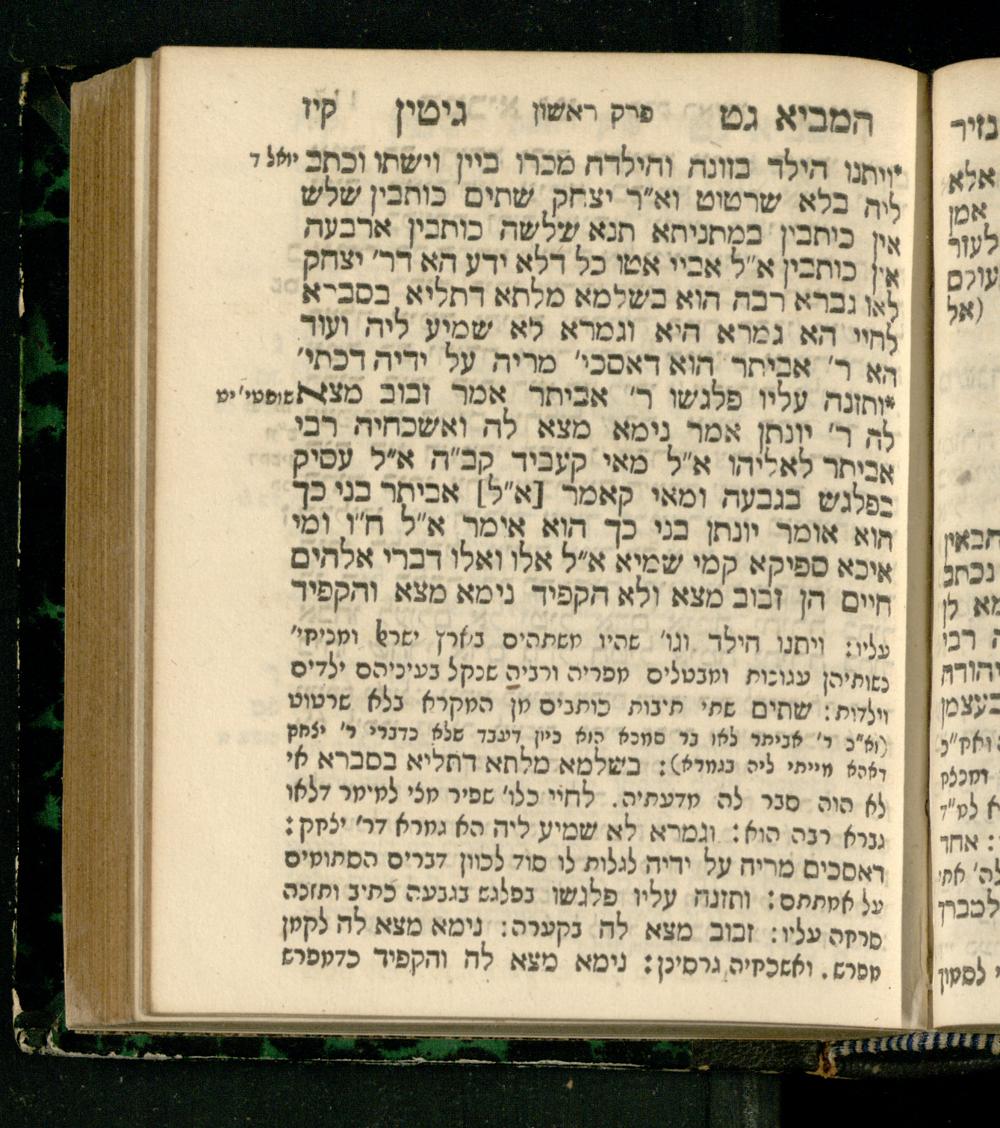 המביא גט פרק ראשון גיטין קיז
*ויתנו הילד בזונה והילדה מכרו ביין וישתו וכתב יואל ד
ליה בלא שרטוט וא״ר יצחק שתים כותבין שלש
אין כותבין במתניתא תנא שלשה כותבין ארבעה
אין כותבין א״ל אביי אטו כל דלא ידע הא דר׳ יצחק
לאו גברא רבה הוא בשלמא מלתא דתליא בסברא
לחיי הא גמרא היא וגמרא לא שמיע ליה ועוד
הא ר׳ אביתר הוא דאסכי׳ מריה על ידיה דכתי׳
*ותזנה עליו פלגשו ר׳ אביתר אמר זבוב מצא שופטי׳ יט
לה ר׳ יונתן אמר נימא מצא לה ואשכחיה רבי
אביתר לאליהו א״ל מאי קעביד קב״ה א״ל עסיק
בפלגש בגבעה ומאי קאמר [א״ל] אביתר בני כך
הוא אומר יונתן בני כך הוא אימר א״ל ח״ו ומי
איכא ספיקא קמי שמיא א״ל אלו ואלו דברי אלהים
חיים הן זבוב מצא ולא הקפיד נימא מצא והקפיד
עליו: ויתנו הילד וגו׳ שהיו משתהים בארץ ישראל ומניחי׳
נשותיהן עגונות ומבטלים מפריה ורביה שנקל בעיניהם ילדים
וילדות: שתים שתי תיבות כותבים מן המקרא בלא שרטוט
(וא״כ ר׳ אביתר לאו בר סמכא הוא כיון דעבד שלא כדברי ר׳ יצחק
דאהא מייתי ליה בגמרא): בשלמא מלתא דתליא בסברא אי
לא הוה סבר לה מדעתיה. לחיי כלו׳ שפיר מצי למימר דלאו
גברא רבה הוא: וגמרא לא שמיע ליה הא גמרא דר׳ יצחק:
דאסכים מריה על ידיה לגלות לו סוד לכוון דברים הסתומים
על אמתתם: ותזנה עליו פלגשו בפלגש בגבעה כתיב ותזנה
סרחה עליו: זבוב מצא לה בקערה: נימא מצא לה לקמן
מפרש. ואשכחיה גרסינן: נימא מצא לה והקפיד כדמפרש
נזיר
אלא
אמן
לעזר
עולם
(אל
נכתב
מא לן
רבי
יהודה
בעצמן
ואק״כ
: אחד
למברך
לסמון